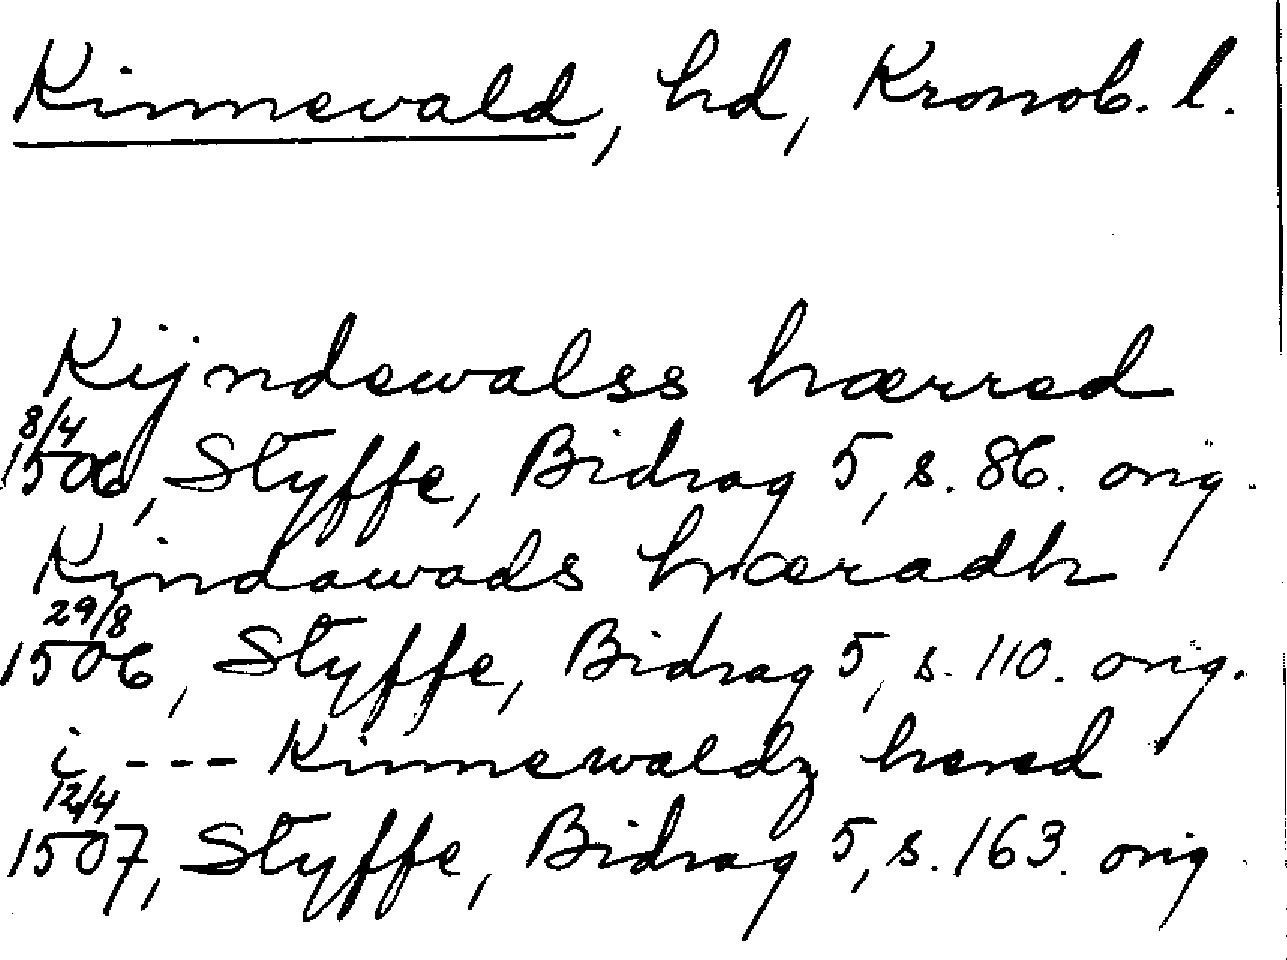 Kinnevald, hd, Kronob. l.
Kijndewalss hærred
8/4
1506, Styffe, Bidrag 5, s. 86. orig.
Kindawads hæradh
29/8
1506, Styffe, Bidrag 5, s. 110. orig.
i --- Kinnewaldz hered
12/4
1507, Styffe, Bidrag 5, s. 163. orig